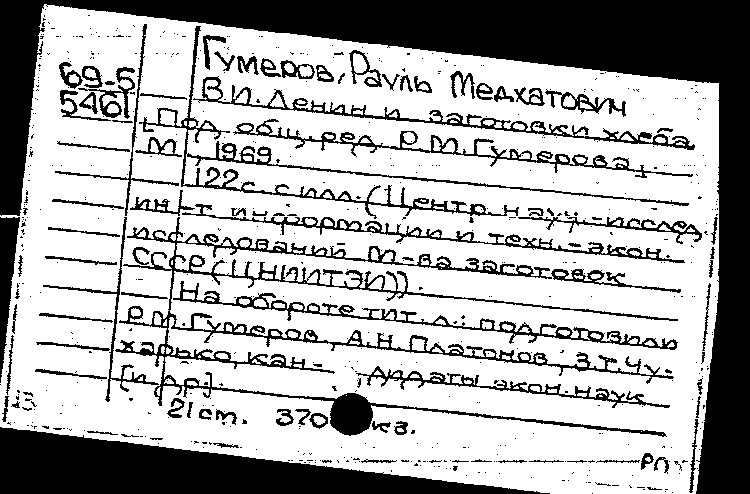 69-5
5461
Гумеров, Рауль Медхатович
В.И. Ленин и заготовки хлеба
[Под общ. ред. Р.М. Гумерова].
М., 1969.
122 с. с илл. (Центр. науч.-исслед.
ин-т информации и техн.-экон.
исследований М-ва заготовок
СССР (ЦНИИТЭИ)).
На обороте тит. л.: подготовили
Р.М. Гумеров, А.Н. Платонов, З.Т. Чу-
харько, кан- дидаты экон. наук
[и др.].
21 cm. 370 экз.
13
РП